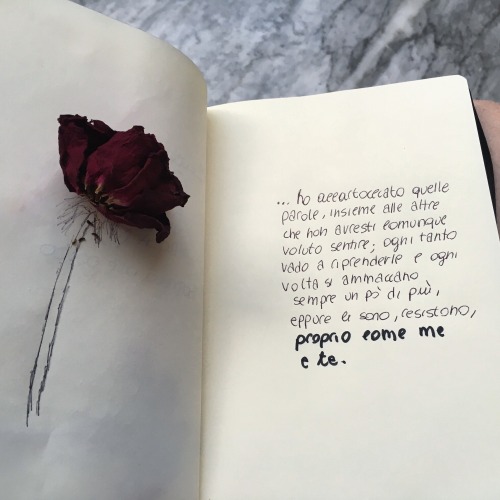 ... ho accartocciato quelle
parole, insieme alle altre
che non avresti comunque
voluto sentire; ogni tanto
vado a riprenderle e ogni
volta si ammaccano
sempre un pò di più,
eppure ci sono, resistono,
proprio come me
e te.